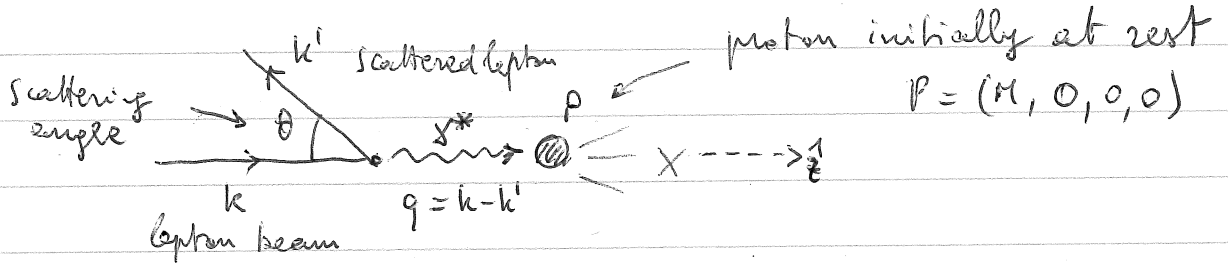 k' scattered lepton
proton initially at rest
P = (M, 0, 0, 0)
scattering angle
θ
γ*
P
X
ẑ
k
q = k - k'
lepton beam